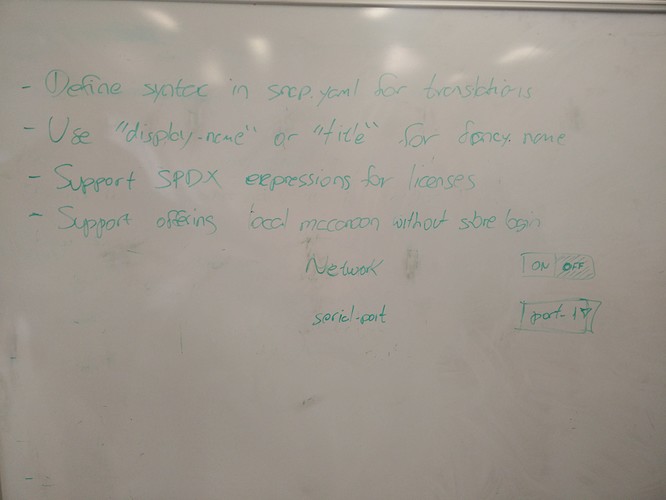 - Define syntax in snap.yaml for translations
- Use "display-name" or "title" for fancy name
- Support SPDX expressions for licenses
- Support offering local macaroon without store login
Network ON OFF
serial-port port-1